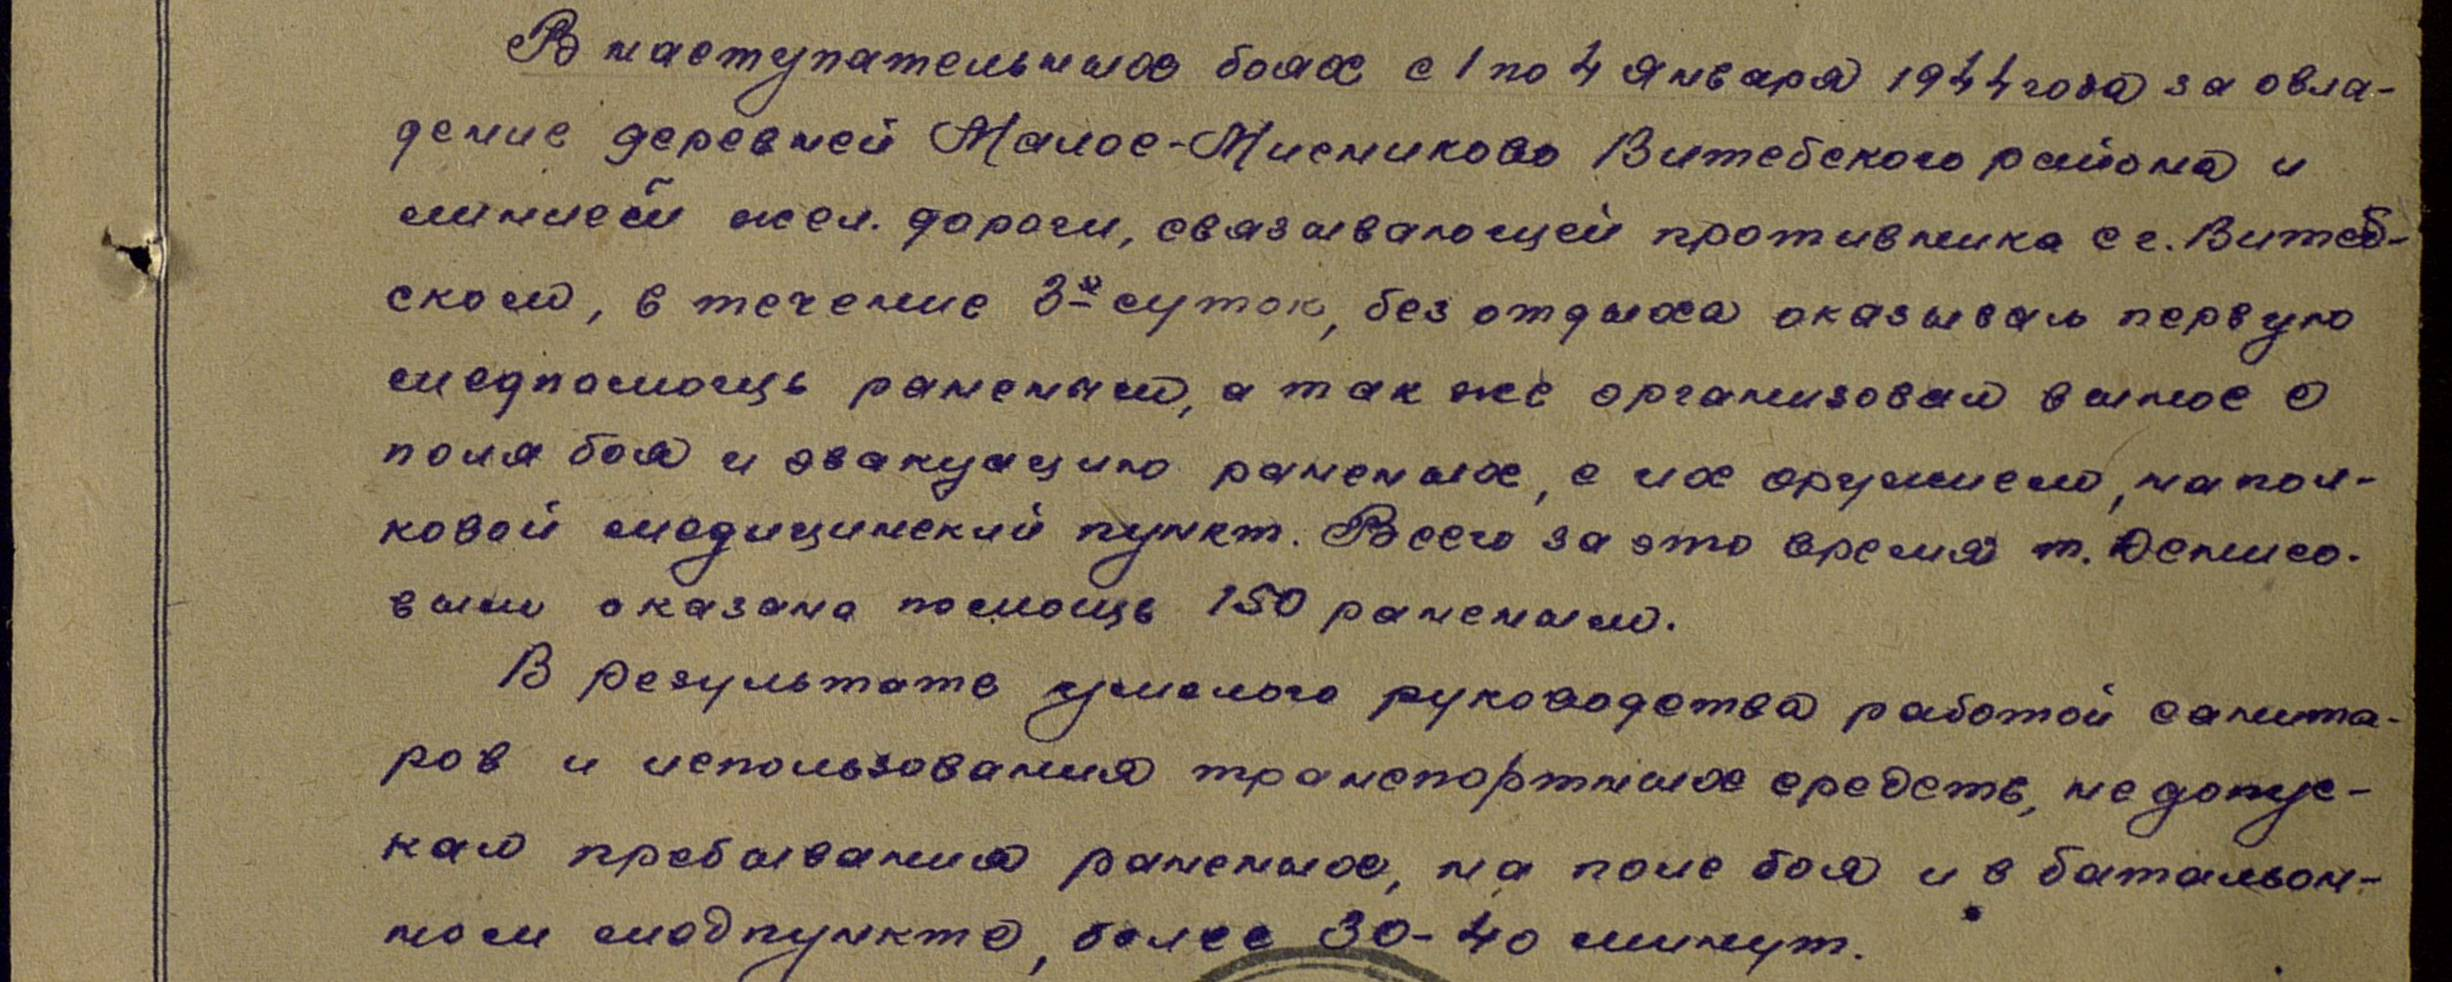 В наступательных боях с 1 по 4 января 1944 года за овла-
дение деревней Малое-Мисниково Витебского района и
линией жел. дороги, связывающей противника с г. Витеб-
ском, в течение 3х суток, без отдыха оказывал первую
медпомощь раненым, а так же организовал вынос с
поля боя и эвакуацию раненых, с их оружием, на пол-
ковой медицинский пункт. Всего за это время т. Денисо-
вым оказана помощь 150 раненым.
В результате умелого руководства работой санита-
ров и использования транспортных средств, не допус-
кал пребывания раненых, на поле боя и в батальон-
ном медпункте, более 30-40 минут.